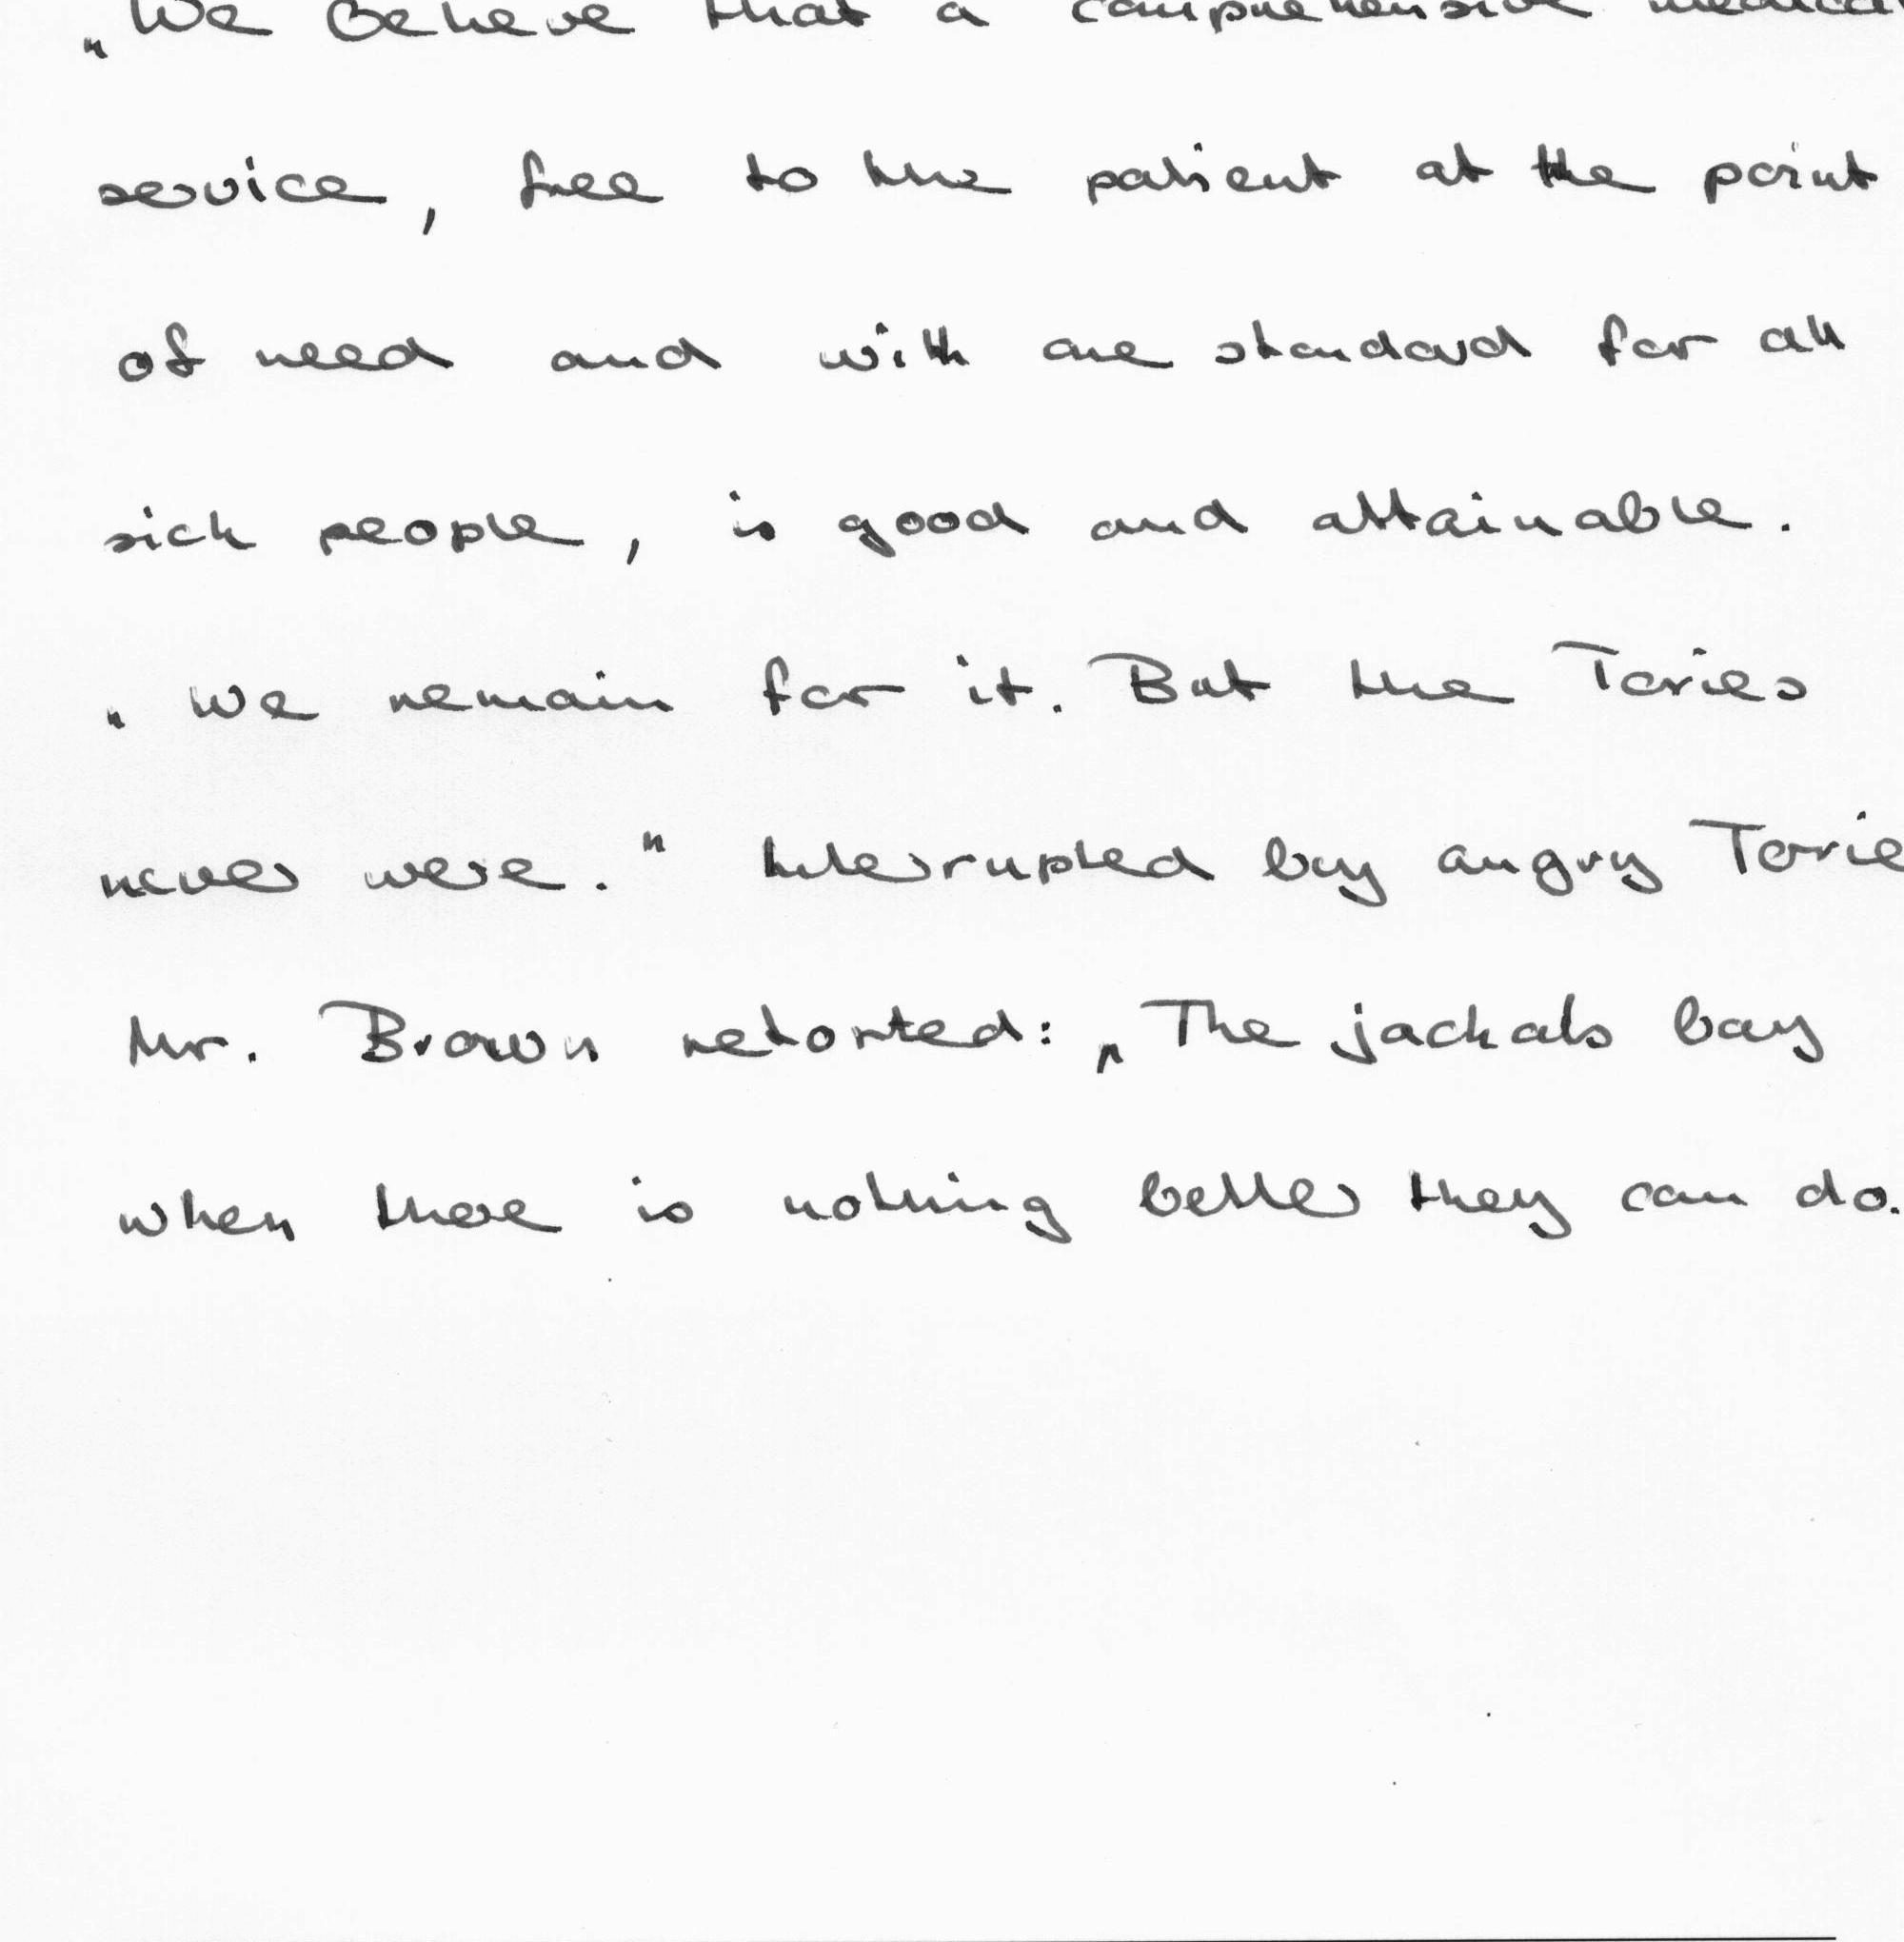 „We believe that a comprehensive medical
service, free to the patient at the point
of need and with one standard for all
sick people, is good and attainable.
„We remain for it. But the Tories
never were." Interrupted by angry Torie
Mr. Brown retorted: „The jackals bay
when there is nothing better they can do.